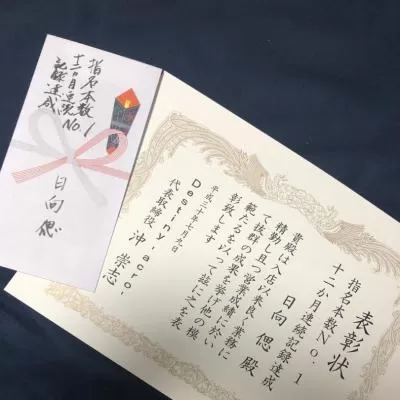 指名本数
十二ヶ月連続No.1
記録達成
日向 偲
表彰状
指名本数No.1
十二か月連続記録達成
日向 偲 殿
貴殿は入店以来良く業務に
精勤し且つ営業成績に於い
て抜群の成果を挙げ他の模
範たるを以って誠に之を表
彰致します
平成三十年七月九日
Destiny-acro-
代表取締役 沖 崇志